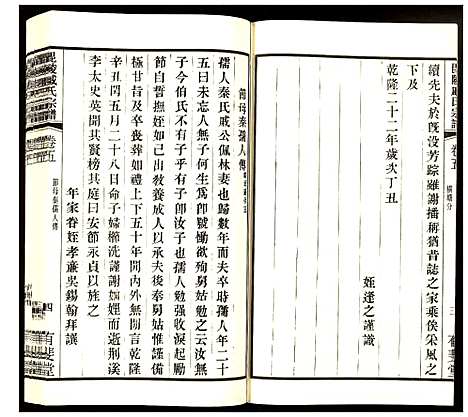 毘陵戚氏宗譜 卷五 橫塘分 三 有斐堂
續先夫於旣没芳踪雖謝播稱猶昔誌之家乘俟采風之
下及
乾隆二十二年歲次丁丑
姪逢之謹識
節母秦孺人傳
孺人秦氏戚公佩林妻也歸數年而夫卒時孺人年二十
五曰未亡人無子何生爲且號且慟欲殉舅姑勉之曰無
子今伯氏不有子乎卽汝子也孺人勉强收淚起勵
節自誓撫姪如己出敎養成人以承夫後奉舅姑惟謹備
極甘旨及卒喪葬如禮上下五十年內外無閒言乾隆
辛丑閏五月二十八日命子婦櫛洗謹謝姻姪而逝荆溪
李太史英聞其賢榜其庭曰安節永貞以旌之
年家眷姪孝亷吳錫翰拜譔
毘陵戚氏宗譜 卷五 節母秦孺人傳 四 有斐堂